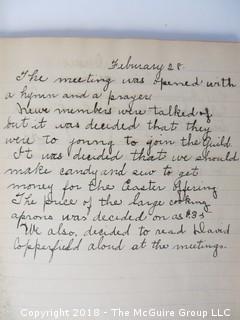 Feburary 28.
The meeting was opened with
a hymn and a prayer.
Newe members were talked of
but it was decided that they
were to young to join the Guild.
It was decided that we should
make candy and sew to get
money for the Easter Offering
The price of the large cooking
aprons was decided on as
We also, decided to read David
Copperfield aloud at the meetings.
Copyright 2018 - The McGuire Group LLC